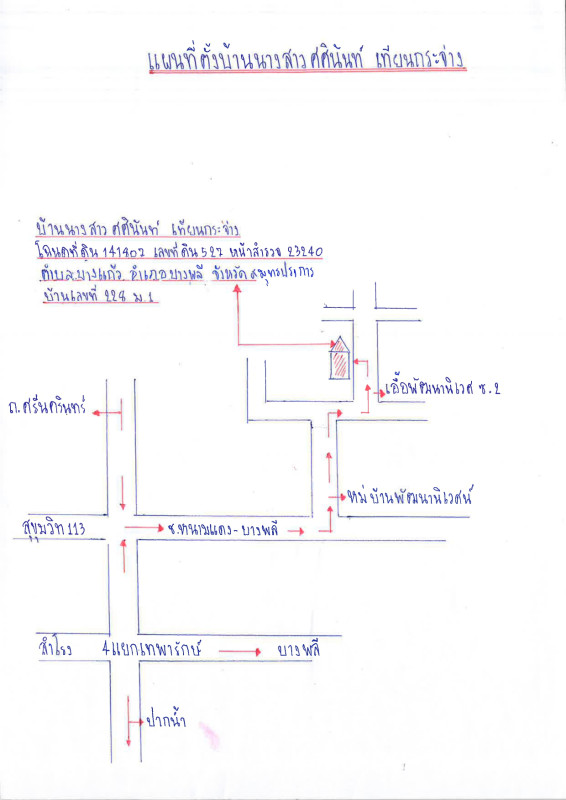 แผนที่ตั้งบ้านนางสาวศศินันท์ เทียนกระจ่าง
บ้านนางสาว ศศินันท์ เทียนกระจ่าง
โฉนดที่ดิน 141407 เลขที่ดิน 527 หน้าสำรวจ 23240
ตำบล บางแก้ว อำเภอ บางพลี จังหวัด สมุทรปราการ
บ้านเลขที่ 228 ม.1
เอื้อพัฒนานิเวศ ซ.2
ถ.ศรีนครินทร์
หมู่บ้านพัฒนานิเวศน์
สุขุมวิท 113
ซ.หนามแดง-บางพลี
สำโรง
4แยกเทพารักษ์
บางพลี
ปากน้ำ